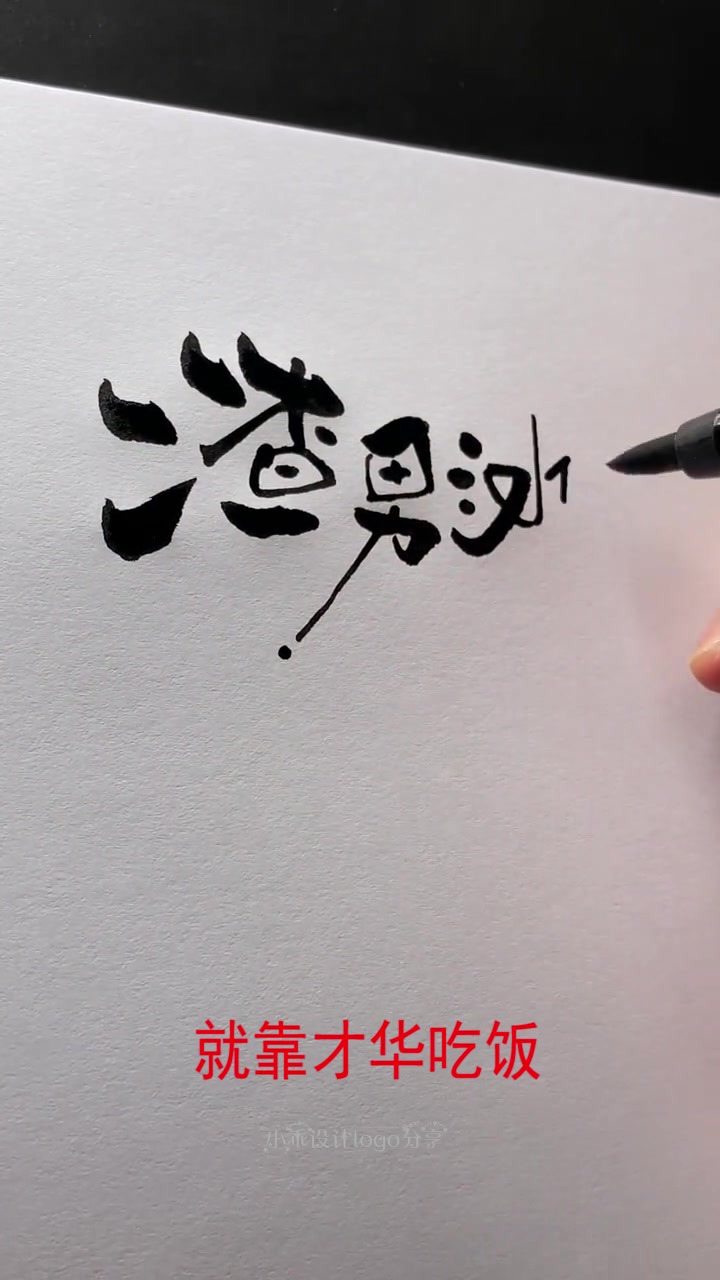 渣男
就靠才华吃饭
小乖设计logo分享